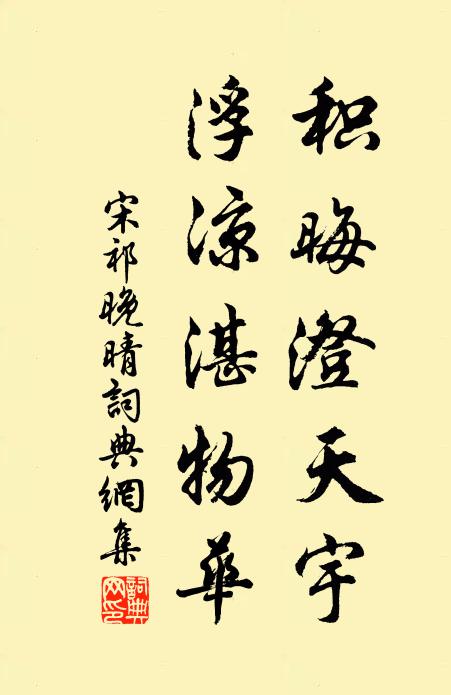 积晦澄天宇
浮凉湛物華
宋祁晚晴詞典網集
詞典网印